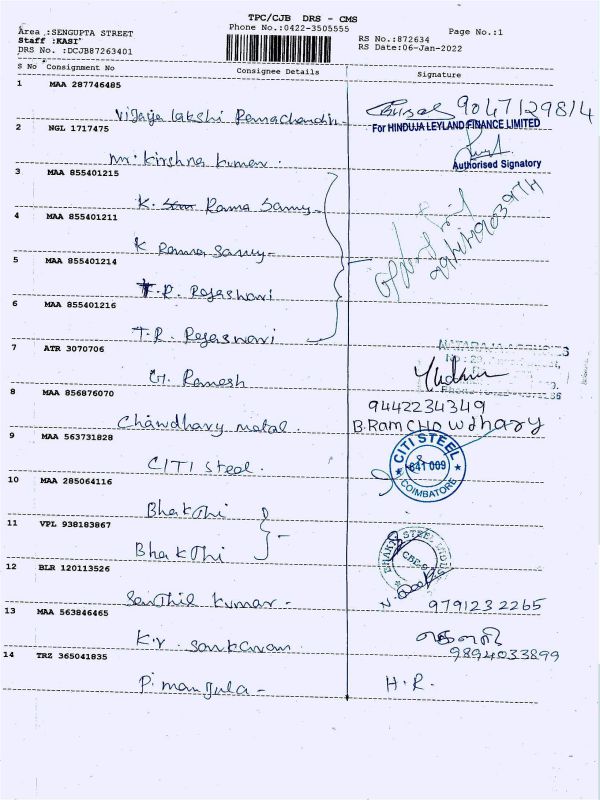 TPC/CJB DRS - CMS
Phone No.:0422-3505555
Page No.:1
Area :SENGUPTA STREET
Staff :KASI
DRS No. :DCJB87263401
RS No.:872634
RS Date:06-Jan-2022
S No Consignment No Consignee Details Signature
1 MAA 287746485
Vijaya lakshi Ramachandin
9047129814
For HINDUJA LEYLAND FINANCE LIMITED
2 NGL 1717475
Mr. Kirshna kumar.
Authorised Signatory
3 MAA 855401215
K. Rama Samy
4 MAA 855401211
K Rama Samy
5 MAA 855401214
T.R. Rajashari
6 MAA 855401216
T.R. Rajashari
7 ATR 3070706
G. Ramesh
8 MAA 856876070
9442234349
Chawdhary matal.
B.RAM CHOWdhary
9 MAA 563731828
CITI Steel.
CITI STEEL
641 009
COIMBATORE
10 MAA 285064116
Bhakthi
11 VPL 938183867
Bhakthi
12 BLR 120113526
Santhil kumar -
9791232265
13 MAA 563846465
K.V. Sankaran
9894033899
14 TRZ 365041835
P. manjula -
H.R.